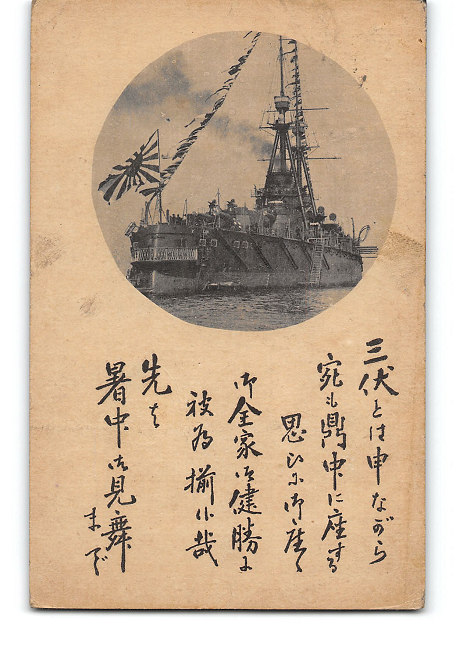 三伏とは申ながら
宛も鼎中に座する
思ひに御座候
御全家御健勝に
被為揃候哉
先は
暑中御見舞
まで